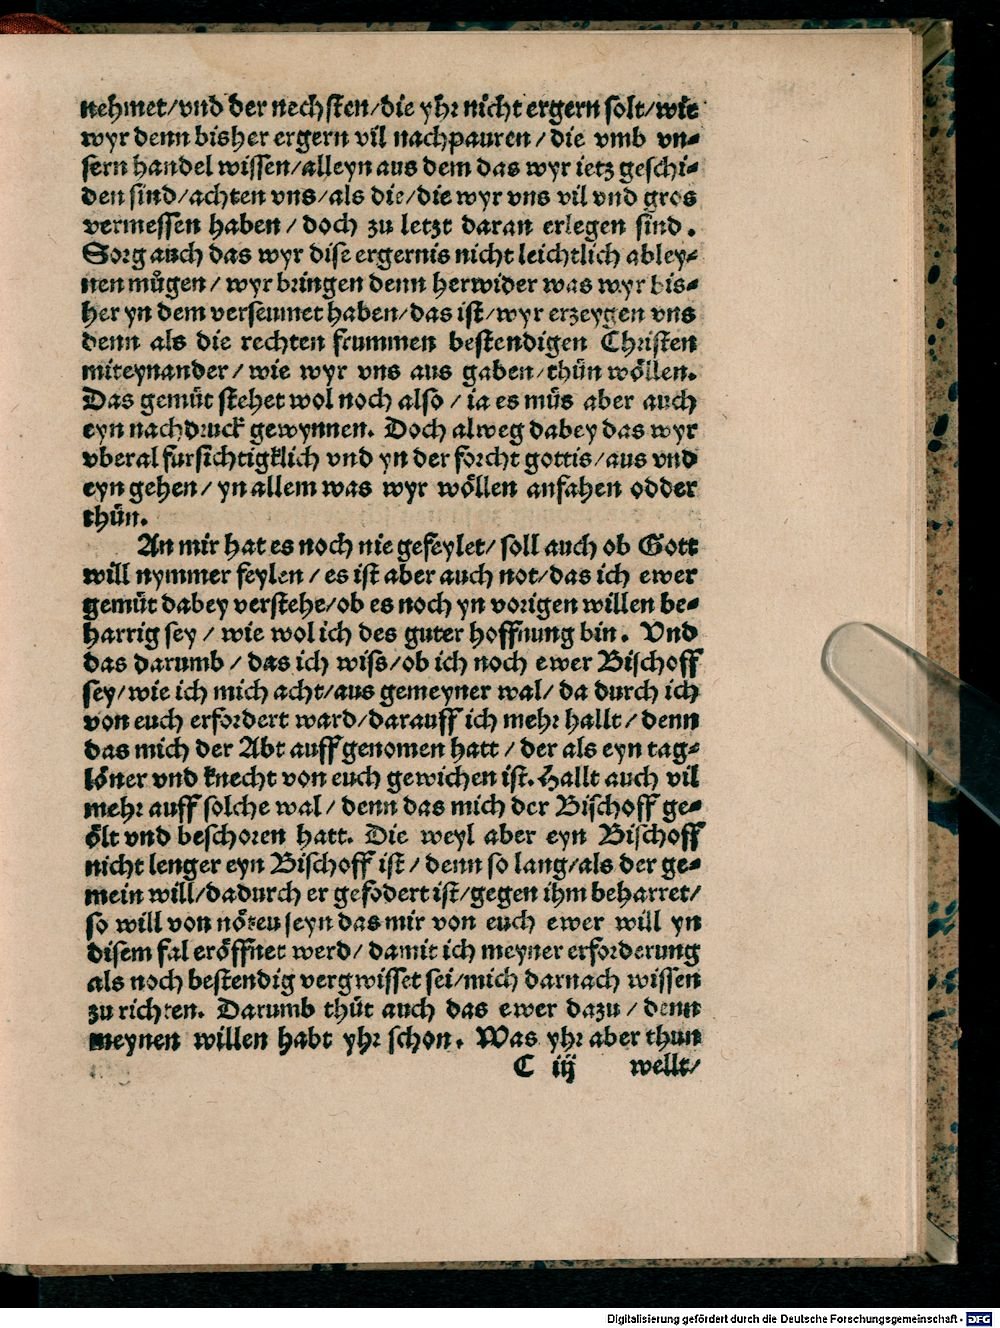 nehmet/vnd der nechsten/die yhr nicht ergern solt/wie
wyr denn bisher ergern vil nachpauren/die vmb vn⸗
sern handel wissen/alleyn aus dem das wyr ietz geschi⸗
den sind/achten vns/als die/die wyr vns vil vnd gros
vermessen haben/doch zu letzt daran erlegen sind.
Sorg auch das wyr dise ergernis nicht leichtlich abley⸗
nen můgen/wyr bringen denn herwider was wyr bis⸗
her yn dem verseumet haben/das ist/wyr erzeygen vns
denn als die rechten frummen bestendigen Christen
miteynander/wie wyr vns aus gaben/thün wöllen.
Das gemüt stehet wol noch also/ia es müs aber auch
eyn nachdruck gewynnen. Doch alweg dabey das wyr
vberal fursichtigklich vnd yn der forcht gottis/aus vnd
eyn gehen/yn allem was wyr wöllen anfahen odder
thün.
An mir hat es noch nie gefeylet/soll auch ob Gott
will nymmer feylen/es ist aber auch not/das ich ewer
gemüt dabey verstehe/ob es noch yn vorigen willen be⸗
harrig sey/wie wol ich des guter hoffnung bin. Vnd
das darumb/das ich wiss/ob ich noch ewer Bischoff
sey/wie ich mich acht/aus gemeyner wal/da durch ich
von euch erfordert ward/darauff ich mehr hallt/denn
das mich der Abt auff genomen hatt/der als eyn tag⸗
löner vnd knecht von euch gewichen ist. Hallt auch vil
mehr auff solche wal/denn das mich der Bischoff ge⸗
ölt vnd beschoren hatt. Die weyl aber eyn Bischoff
nicht lenger eyn Bischoff ist/denn so lang/als der ge⸗
mein will/dadurch er gefodert ist/gegen ihm beharret/
so will von nöten seyn das mir von euch ewer will yn
disem fal eröffnet werd/damit ich meyner erforderung
als noch bestendig vergwisset sei/mich darnach wissen
zu richten. Darumb thüt auch das ewer dazu/denn
meynen willen habt yhr schon. Was yhr aber thun
C iij wellt/
Digitalisierung gefördert durch die Deutsche Forschungsgemeinschaft - DFG